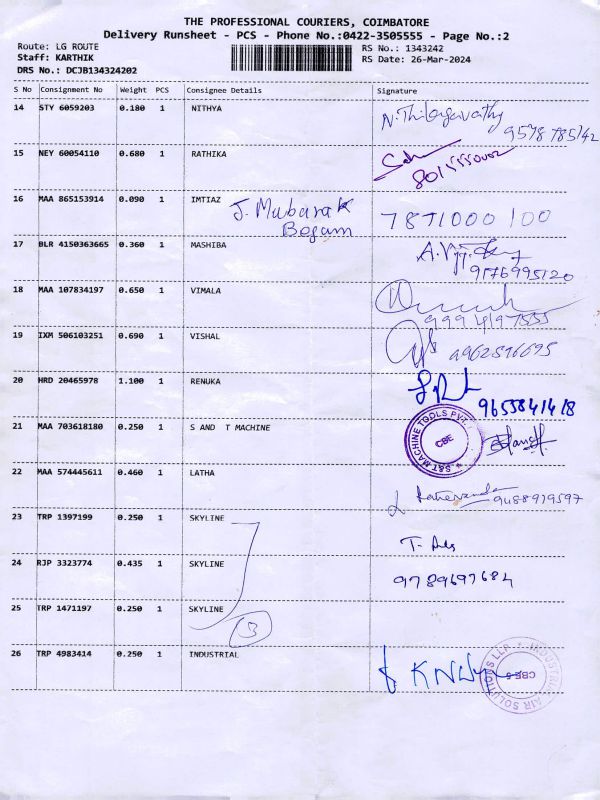 THE PROFESSIONAL COURIERS, COIMBATORE
Delivery Runsheet - PCS - Phone No.:0422-3505555 - Page No.:2
Route: LG ROUTE
Staff: KARTHIK
DRS No.: DCJB134324202
RS No.: 1343242
RS Date: 26-Mar-2024
S No Consignment No Weight PCS Consignee Details Signature
14 STY 6059203 0.180 1 NITHYA
N. Thilagavathy
9578 785142
15 NEY 60054110 0.680 1 RATHIKA
8015550002
16 MAA 865153914 0.090 1 IMTIAZ
J. Mubarak
Begam
7871000100
17 BLR 4150363665 0.360 1 MASHIBA
9176995120
18 MAA 107834197 0.650 1 VIMALA
19 IXM 506103251 0.690 1 VISHAL
20 HRD 20465978 1.100 1 RENUKA
9655841418
21 MAA 703618180 0.250 1 S AND T MACHINE
S&T MACHINE TOOLS PVT.
CBE
22 MAA 574445611 0.460 1 LATHA
9488919597
23 TRP 1397199 0.250 1 SKYLINE
24 RJP 3323774 0.435 1 SKYLINE
9789697684
25 TRP 1471197 0.250 1 SKYLINE
3
26 TRP 4983414 0.250 1 INDUSTRIAL
INDUSTRIAL AIR SOLUTIONS LLP
CBE-6